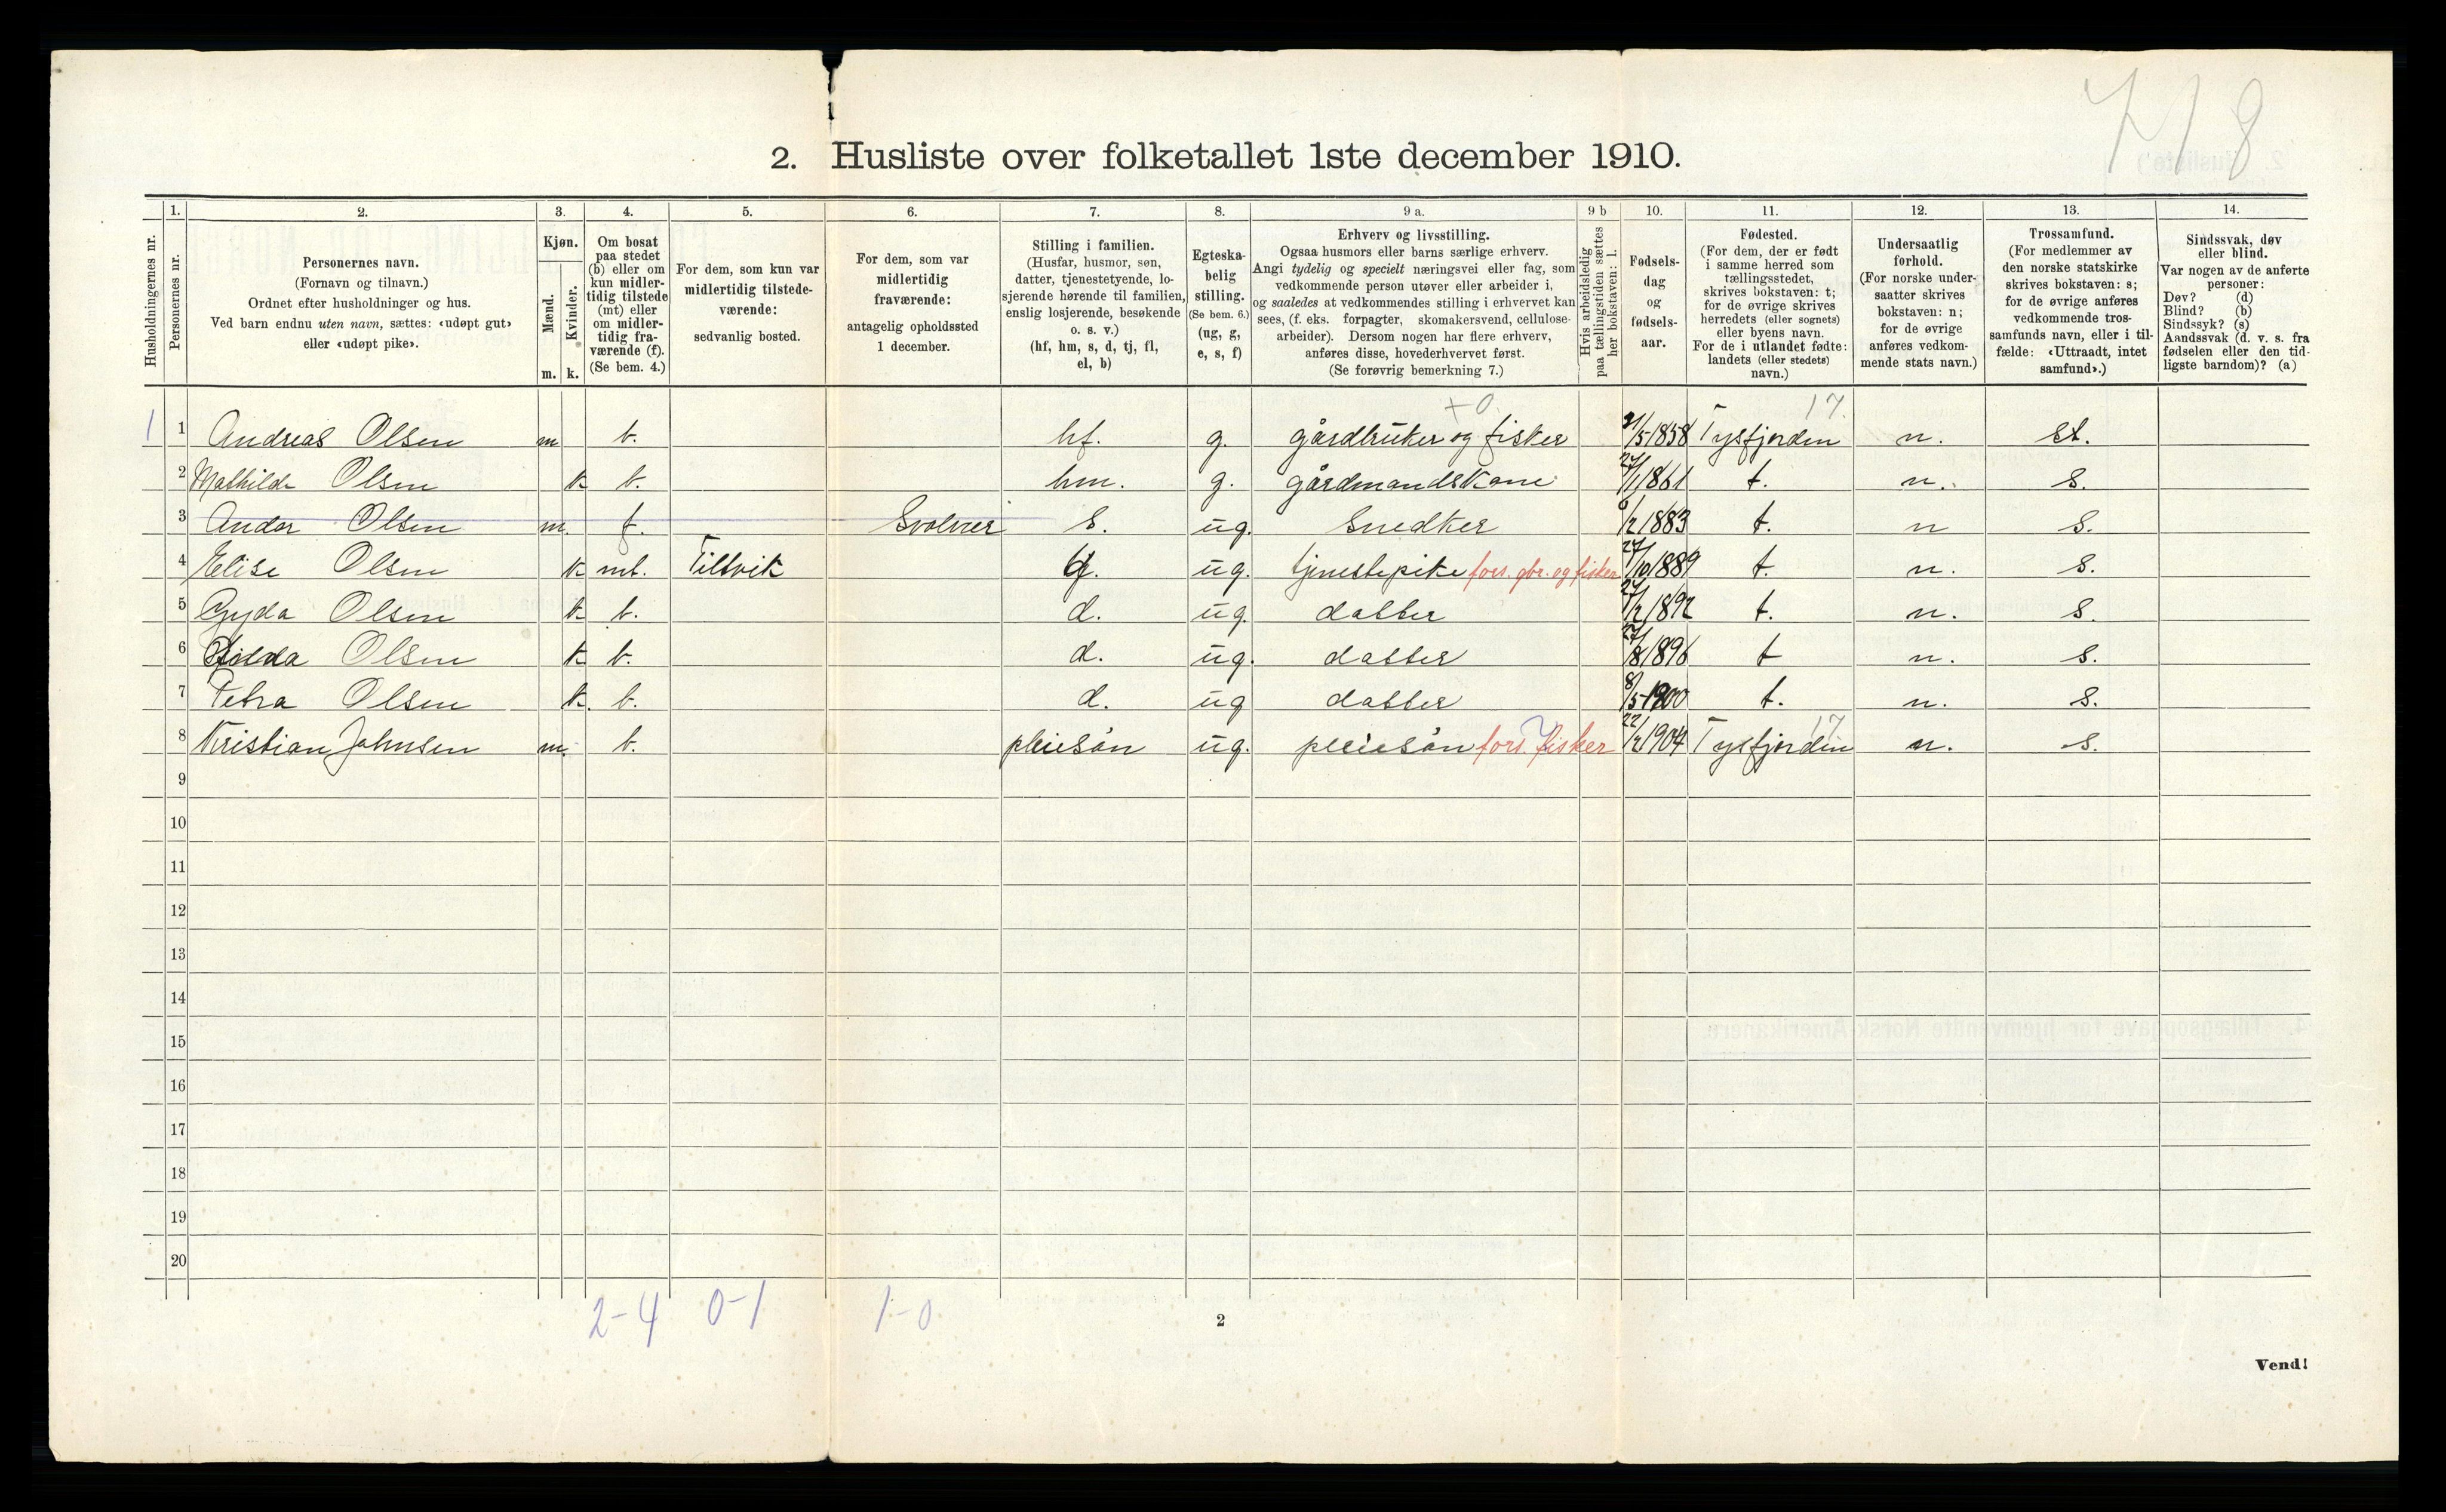 718
2. Husliste over folketallet 1ste december 1910.
Husholdningernes nr.
1. Personernes nr.
2. Personernes navn. (Fornavn og tilnavn.) Ordnet efter husholdninger og hus. Ved barn endnu uten navn, sættes: «udøpt gut» eller «udøpt pike».
3. Kjøn. Mænd. m. Kvinder. k.
4. Om bosat paa stedet (b) eller om kun midlertidig tilstede (mt) eller om midlertidig fraværende (f). (Se bem. 4.)
5. For dem, som kun var midlertidig tilstedeværende: sedvanlig bosted.
6. For dem, som var midlertidig fraværende: antagelig opholdssted 1 december.
7. Stilling i familien. (Husfar, husmor, søn, datter, tjenestetyende, losjerende hørende til familien, enslig losjerende, besøkende o. s. v.) (hf, hm, s, d, tj, fl, el, b)
8. Egteskabelig stilling. (Se bem. 6.) (ug, g, e, s, f)
9 a. Erhverv og livsstilling. Ogsaa husmors eller barns særlige erhverv. Angi tydelig og specielt næringsvei eller fag, som vedkommende person utøver eller arbeider i, og saaledes at vedkommendes stilling i erhvervet kan sees, (f. eks. forpagter, skomakersvend, cellulosearbeider). Dersom nogen har flere erhverv, anføres disse, hovederhvervet først. (Se forøvrig bemerkning 7.)
9 b Hvis arbeidsledig paa tællingstiden sættes her bokstaven: l.
10. Fødselsdag og fødselsaar.
11. Fødested. (For dem, der er født i samme herred som tællingsstedet, skrives bokstaven: t; for de øvrige skrives herredets (eller sognets) eller byens navn. For de i utlandet fødte: landets (eller stedets) navn.)
12. Undersaatlig forhold. (For norske undersaatter skrives bokstaven: n; for de øvrige anføres vedkommende stats navn.)
13. Trossamfund. (For medlemmer av den norske statskirke skrives bokstaven: s; for de øvrige anføres vedkommende trossamfunds navn, eller i tilfælde: «Uttraadt, intet samfund».)
14. Sindssvak, døv eller blind. Var nogen av de anførte personer: Døv? (d) Blind? (b) Sindssyk? (s) Aandssvak (d. v. s. fra fødselen eller den tidligste barndom)? (a)
+0 17.
1 1 Andreas Olsen m b. hf. g. gårdbruker og fisker 21/5 1858 Tysfjorden n. st.
2 Mathilde Olsen k b. hm. g. gårdmandskone 27/1 1861 t. n. s.
3 Andor Olsen m. f. Svolvær s. ug. snedker 6/2 1883 t. n s.
4 Elise Olsen k mt. Tiltvik d. ug. tjenestepike fors. gbr. og fisker 27/10 1889 t. n. s.
5 Gyda Olsen k b. d. ug. datter 27/2 1892 t. n. s.
6 Hilda Olsen k b. d. ug. datter 27/8 1896 t n. s.
7 Petra Olsen k. b. d. ug datter 8/5 1900 t. n. s.
8 Kristian Johnsen m. b. pleiesön ug. pleiesön fors. fisker 22/2 1904 Tysfjorden 17 n. s.
9
10
11
12
13
14
15
16
17
18
19
20
2-4 0-1 1-0
2
Vend!